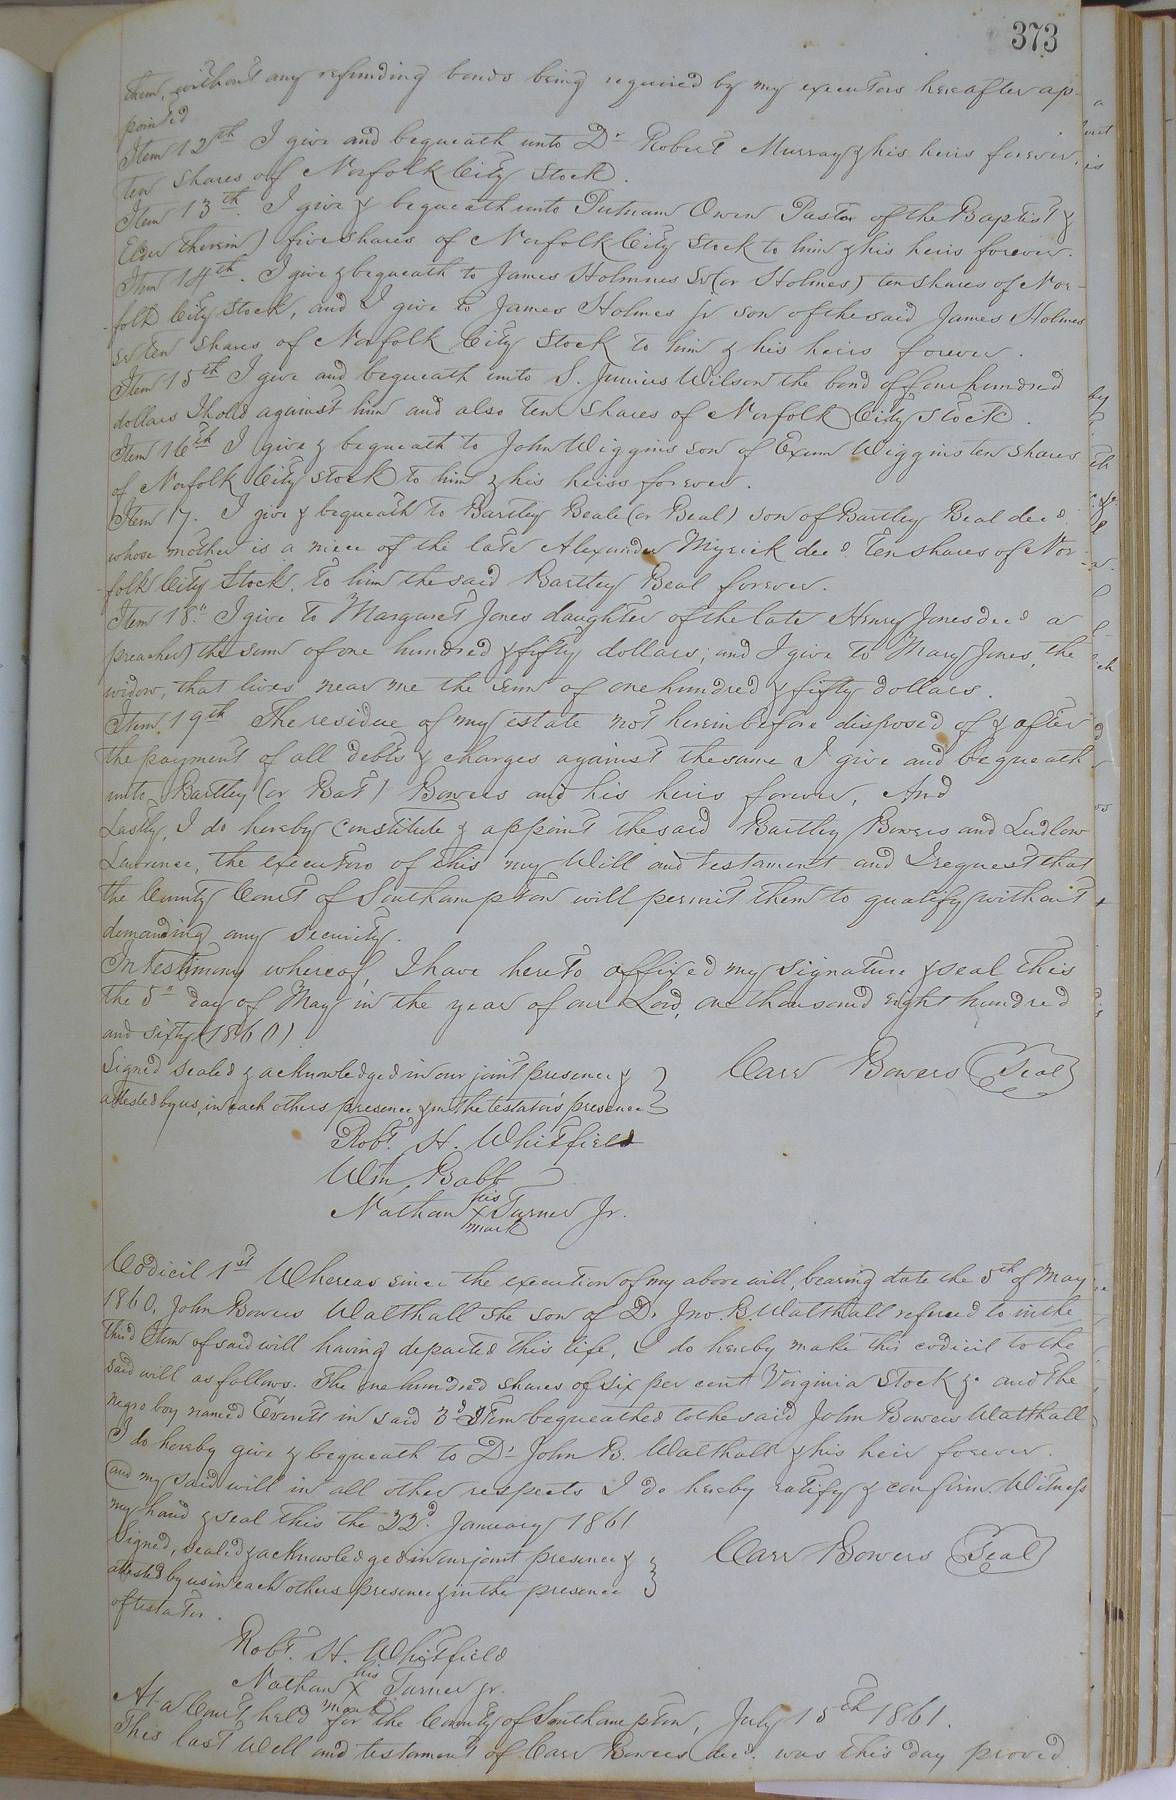 373
them, without any refunding bonds being required by my executors hereafter ap-
pointed
Item 12th I give and bequeath unto Dr Robert Murray & his heirs forever,
ten shares of Norfolk City Stock.
Item 13th. I give & bequeath unto Putnam Owen Pastor of the Baptist &
Elder therein) five shares of Norfolk City Stock to him & his heirs forever.
Item 14th. I give & bequeath to James Holmnes Sr (or Holmes) ten shares of Nor-
folk City Stock, and I give to James Holmes Jr son of the said James Holmes
Sr ten shares of Norfolk City Stock to him & his heirs forever.
Item 15th I give and bequeath unto S. Junius Wilson the bond of four hundred
dollars I hold against him and also ten shares of Norfolk City Stock.
Item 16th I give & bequeath to John Wiggins son of Exum Wiggins ten shares
of Norfolk City Stock to him & his heirs forever.
Item 17. I give & bequeath to Bartley Beale (or Beal) son of Bartley Beal decd.
whose mother is a niece of the late Alexander Myrick decd. ten shares of Nor-
folk City Stock. To him the said Bartley Beal forever.
Item 18". I give to Margaret Jones daughter of the late Henry Jones decd a
preacher) the sum of one hundred & fifty dollars; and I give to Mary Jones, the
widow, that lives near me the sum of one hundred & fifty dollars.
Item 19th The residue of my estate not herein before disposed of & after
the payment of all debts & charges against the same I give and bequeath
unto Bartley (or Bat) Bowers and his heirs forever, And
Lastly, I do hereby constitute & appoint the said Bartley Bowers and Ludlow
Lawrence, the executors of this my Will and testament and I request that
the County Court of Southampton will permit them to qualify without
demanding any security.
In testimony whereof, I have hereto affixed my signature & seal this
the 5" day of May in the year of our Lord, one thousand eight hundred
and sixty (1860)
Signed sealed & acknowledged in our joint presence &
attested by us, in each others presence & in the testator's presence
Carr Bowers (Seal)
Robt. H. Whitfield
Wm Babb
Nathan his x mark Turner Jr.
Codicil 1st Whereas since the execution of my above will, bearing date the 5th of May
1860, John Bowers Walthall the son of Dr Jno. B. Walthall refered to in the
third Item of said will having departed this life, I do hereby make this codicil to the
said will as follows. The one hundred shares of six per cent Virginia Stock &c and the
negro boy named Everett in said 3d Item bequeathed to the said John Bowers Walthall
I do hereby give & bequeath to Dr John B. Walthall & his heir forever.
and my said will in all other respects I do hereby ratify & confirm. Witness
my hand & seal this the 22d. January 1861
Signed, sealed & acknowledged in our joint presence &
attested by us in each others presence & in the presence
of testator.
Carr Bowers (Seal)
Robt. H. Whitfield
Nathan his x mark Turner Jr.
At a Court held for the County of Southampton, July 15th 1861.
This last Will and testament of Carr Bowers decd. was this day proved